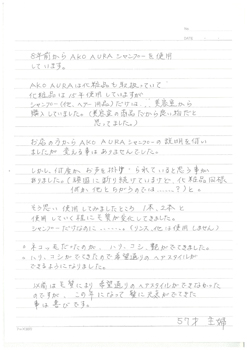 No.
DATE
8年前から AKO AURA シャンプーを使用
しています。
AKO AURAは化粧品も取扱っていて
化粧品は15年使用していますが
シャンプー(他、ヘアー用品)だけは 美容室から
購入していました。(美容室の商品だから良い物だと
思ってました)
お店の方から AKO AURAシャンプーの説明を伺い
ましたが 変える事はありませんでした。
しかし、何度か お手を拝借
ありました。(頑固に断り続けていましたが、化粧品同様、
何か他とちがうのでは……?)と。
そう思い 使用してみましたところ 1本、2本と
使用していく様に毛質が変化してきました。
シャンプーだけなのに……。(リンス、他は使用しません)
* ネコっ毛だったのが、ハリ、コシ、艶がでてきました。
* ハリ、コシがでてきたので希望通りのヘアスタイルが
できるようになりました。
以前は毛質により 希望通りのヘアスタイルができなかった
のですが、この年になって髪に元気がでてきた
事は喜びです。
57才 主婦